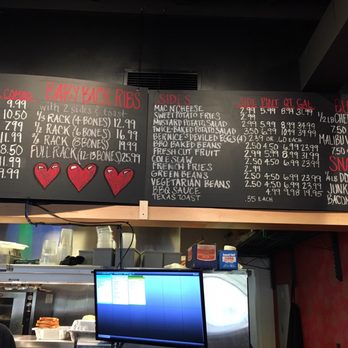 COMBO
9.99
10.50
7.99
11.99
8.50
11.99
9.99
BABY BACK RIBS
with 2 sides & toast
1/3 RACK (4 BONES) 12.99
1/2 RACK (6 BONES) 16.99
2/3 RACK (8 BONES) 19.99
FULL RACK (12-13 BONES) 25.99
SIDES SIDE PINT QT GAL
MAC N' CHEESE 2.99 5.99 8.99 31.99
SWEET POTATO FRIES 2.99
MUSTARD POTATO SALAD 2.50 4.50 6.99 23.99
TWICE-BAKED POTATO SALAD 3.50 6.99
BERNICE'S DEVILED EGGS (4) 2.39 or .60 EACH
BBQ BAKED BEANS 2.50 4.50 6.99 23.99
FRESH CUT FRUIT 2.99 5.99 8.99 31.99
COLE SLAW 2.50 4.50 6.99 23.99
FRENCH FRIES 2.50
GREEN BEANS 2.50 4.50 6.99 23.99
VEGETARIAN BEANS 2.50 4.50 6.99 23.99
BBQ SAUCE 4.99 7.98 14.95
TEXAS TOAST .35 EACH
1/2 LB
CHE
7.50
MALIBU
7.50
SN
1/4 LB DO
JUN
BACON